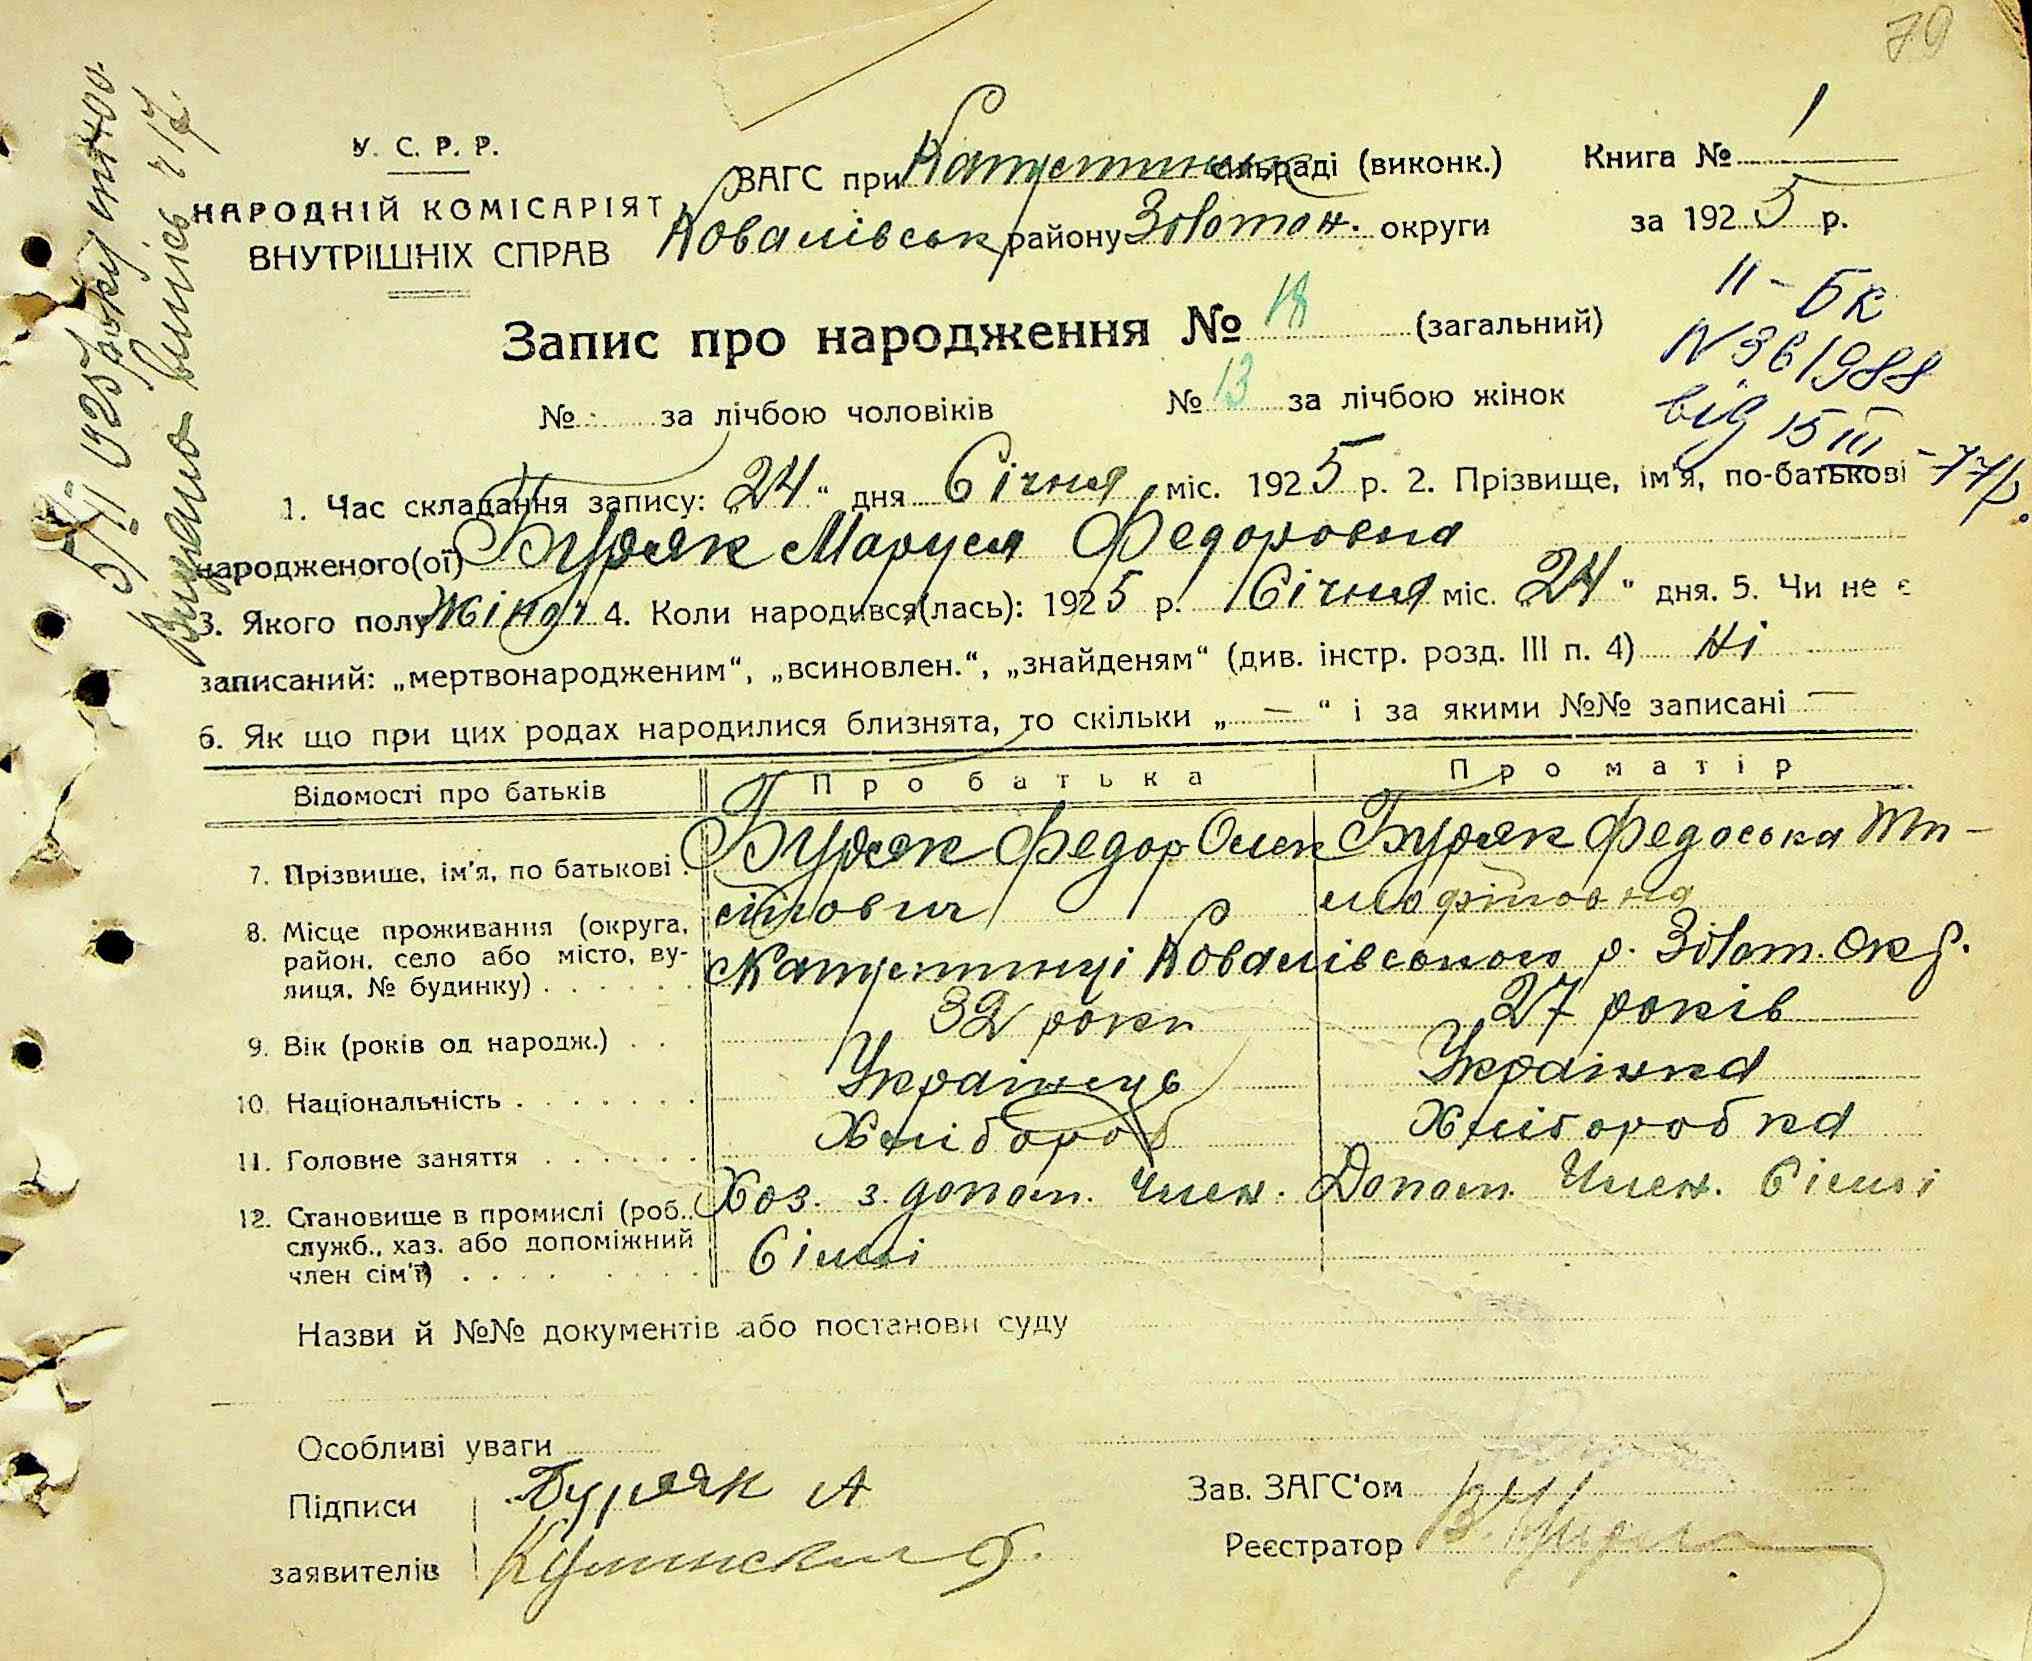 79
У. С. Р. Р.
НАРОДНІЙ КОМІСАРІЯТ
ВНУТРІШНІХ СПРАВ
ВАГС при Капустинськ сільраді (виконк.)
Ковалівськ району Золотон. округи
Книга № 1
за 1925 р.
Запис про народження № 18 (загальний)
№ за лічбою чоловіків № 13 за лічбою жінок
II-БК
N 361988
від 15 III -77р.
5/II 1925 року
Видано випись ч 17.
1. Час складання запису: „24“ дня Січня міс. 1925 р. 2. Прізвище, ім'я, по-батькові
народженого(ої) Буряк Маруся Федоровна
3. Якого полу жіноч 4. Коли народився(лась): 1925 р. Січня міс. „24“ дня. 5. Чи не є
записаний: „мертвонародженим“, „всиновлен.“, „знайденям“ (див. інстр. розд. III п. 4) Ні
6. Як що при цих родах народилися близнята, то скільки „ — “ і за якими №№ записані —
Відомості про батьків Про батька Про матір
7. Прізвище, ім'я, по батькові . Буряк Федор Олек Буряк Федоська Ти-
сійович мофіїовна
8. Місце проживання (округа,
район, село або місто, ву-
лиця, № будинку) . . . . . . Капустинці Ковалівського р. Золот. Окр.
9. Вік (років од народж.) . . 32 роки 27 років
10. Національність . . . . . . . Українець Українка
11. Головне заняття . . . . . . Хлібороб Хліборобка
12. Становище в промислі (роб.,
служб., хаз. або допоміжний
член сім'ї) . . . . . . . . Хоз. з допом. член. Допом. Член. Сімі
Сімі
Назви й №№ документів або постанови суду
Особливі уваги
Підписи Буряк А
заявителів
Зав. ЗАГС'ом
Реєстратор